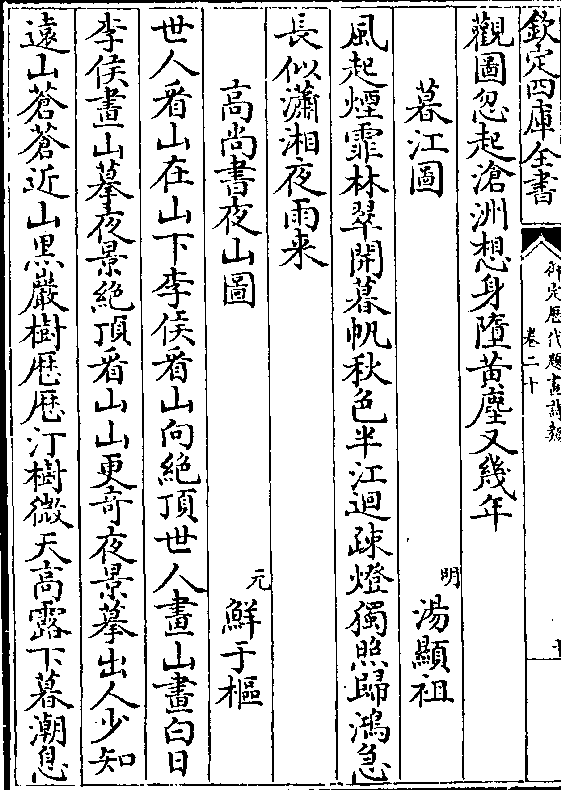 欽定四庫全書
御定歴代題畫詩類
卷二十
觀圖忽起滄洲想身墮黄塵又幾年
暮江圖
明
湯顯祖
風起煙霏林翠開暮帆秋色半江迴疎燈獨照歸鴻急
長似瀟湘夜雨来
高尚書夜山圖
元
鮮于樞
世人看山在山下李侯看山向絶頂世人畫山畫白日
李侯畫山摹夜景絶頂看山山更奇夜景摹出人少知
遠山蒼蒼近山黒巖樹歴歴汀樹微天高露下暮潮息